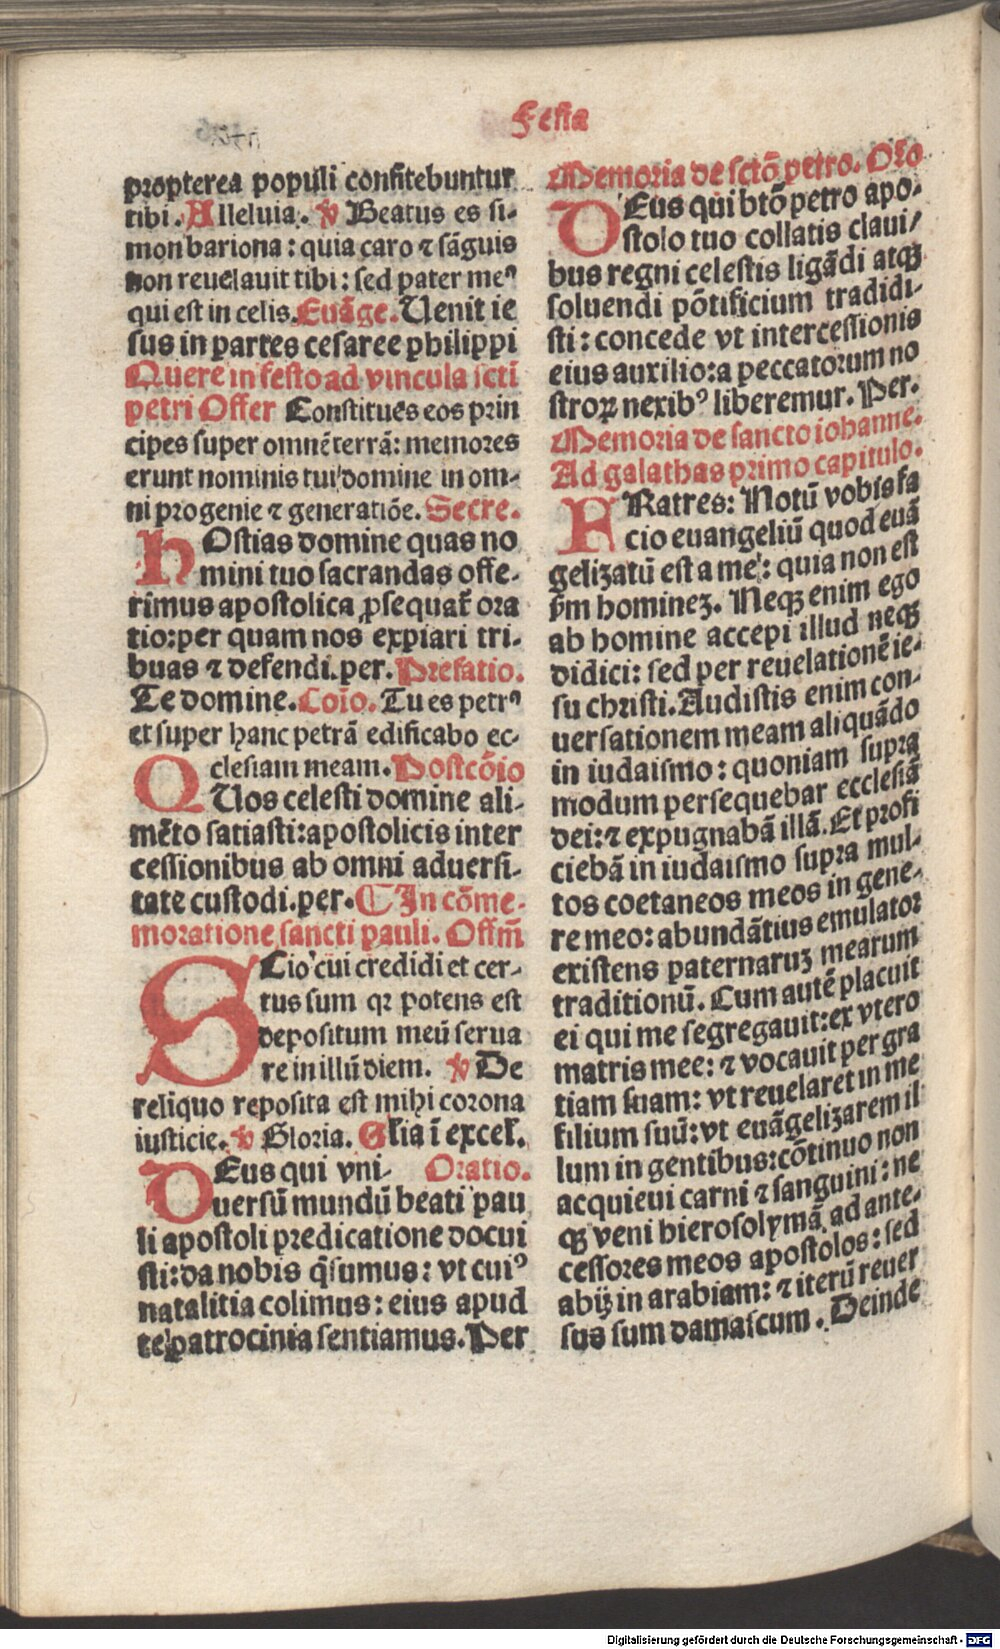 Festa
propterea populi confitebuntur
tibi. Alleluia. ℣ Beatus es si-
mon bariona: quia caro ⁊ sãguis
non reuelauit tibi: sed pater meꝰ
qui est in celis. Euãge. Uenit ie
sus in partes cesaree philippi
Quere in festo ad vincula scti
petri Offer Constitues eos prin
cipes super omnẽ terrã: memores
erunt nominis tui domine in om-
ni progenie ⁊ generatiõe. Secre.
HOstias domine quas no
mini tuo sacrandas offe-
rimus apostolica ꝓsequat̃ ora
tio: per quam nos expiari tri-
buas ⁊ defendi. per. Prefatio.
Te domine. Coĩo. Tu es petrꝰ
et super hanc petrã edificabo ec-
clesiam meam. Postcõio
QUos celesti domine ali-
mẽto satiasti: apostolicis inter
cessionibus ab omni aduersi-
tate custodi. per. ¶ In cõme-
moratione sancti pauli. Offm̃
SCio cui credidi et cer-
tus sum qꝛ potens est
depositum meũ serua
re in illũ diem. ℣ De
reliquo reposita est mihi corona
iusticie. ℣ Gloria. Glia ĩ excel.
DEus qui vni- Oratio.
uersũ mundũ beati pau
li apostoli predicatione docui
sti: da nobis q̃sumus: vt cuiꝰ
natalitia colimus: eius apud
te patrocinia sentiamus. Per
Memoria de sctõ petro. Oro
DEus qui btõ petro apo-
stolo tuo collatis claui/
bus regni celestis ligãdi atqꝫ
soluendi põtificium tradidi-
sti: concede vt intercessionis
eius auxilio: a peccatorum no
stroꝝ nexibꝰ liberemur. Per.
Memoria de sancto iohanne.
Ad galathas primo capitulo.
FRatres: Notũ vobis fa
cio euangeliũ quod euã
gelizatũ est a me: quia non est
ẜm hominez. Neqꝫ enim ego
ab homine accepi illud neqꝫ
didici: sed per reuelationẽ ie-
su christi. Audistis enim con-
uersationem meam aliquãdo
in iudaismo: quoniam supra
modum persequebar ecclesiã
dei: ⁊ expugnabã illã. Et profi
ciebã in iudaismo supra mul-
tos coetaneos meos in gene-
re meo: abundãtius emulator
existens paternaruʒ mearum
traditionũ. Cum autẽ placuit
ei qui me segregauit: ex vtero
matris mee: ⁊ vocauit per gra
tiam suam: vt reuelaret in me
filium suũ: vt euãgelizarem il
lum in gentibus: cõtinuo non
acquieui carni ⁊ sanguini: ne
qꝫ veni hierosolymã ad ante-
cessores meos apostolos: sed
abij in arabiam: ⁊ iterũ reuer
sus sum damascum. Deinde
Digitalisierung gefördert durch die Deutsche Forschungsgemeinschaft - DFG